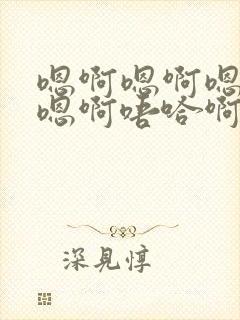 嗯啊嗯啊嗯
嗯啊唔哈啊
深見惇